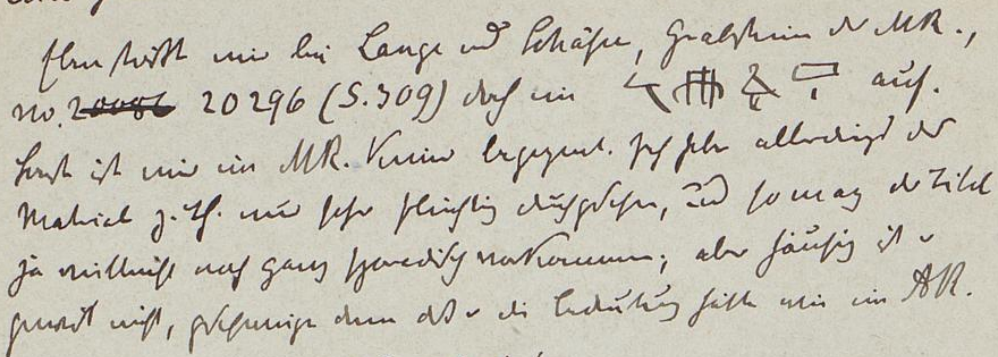 Eben stößt mir bei Lange und Schäfer, Grabsteine des MR.,
no. 20296 (S. 309) doch ein auf.
Sonst ist mir im MR. keiner begegnet. Ich habe allerdings das
Material z. Th. nur sehr flüchtig durchgesehen, und so mag der Titel
ja vielleicht noch ganz sporadisch vorkommen; aber häufig ist er
gewiß nicht, geschweige denn daß er die Bedeutung hätte wie im AR.